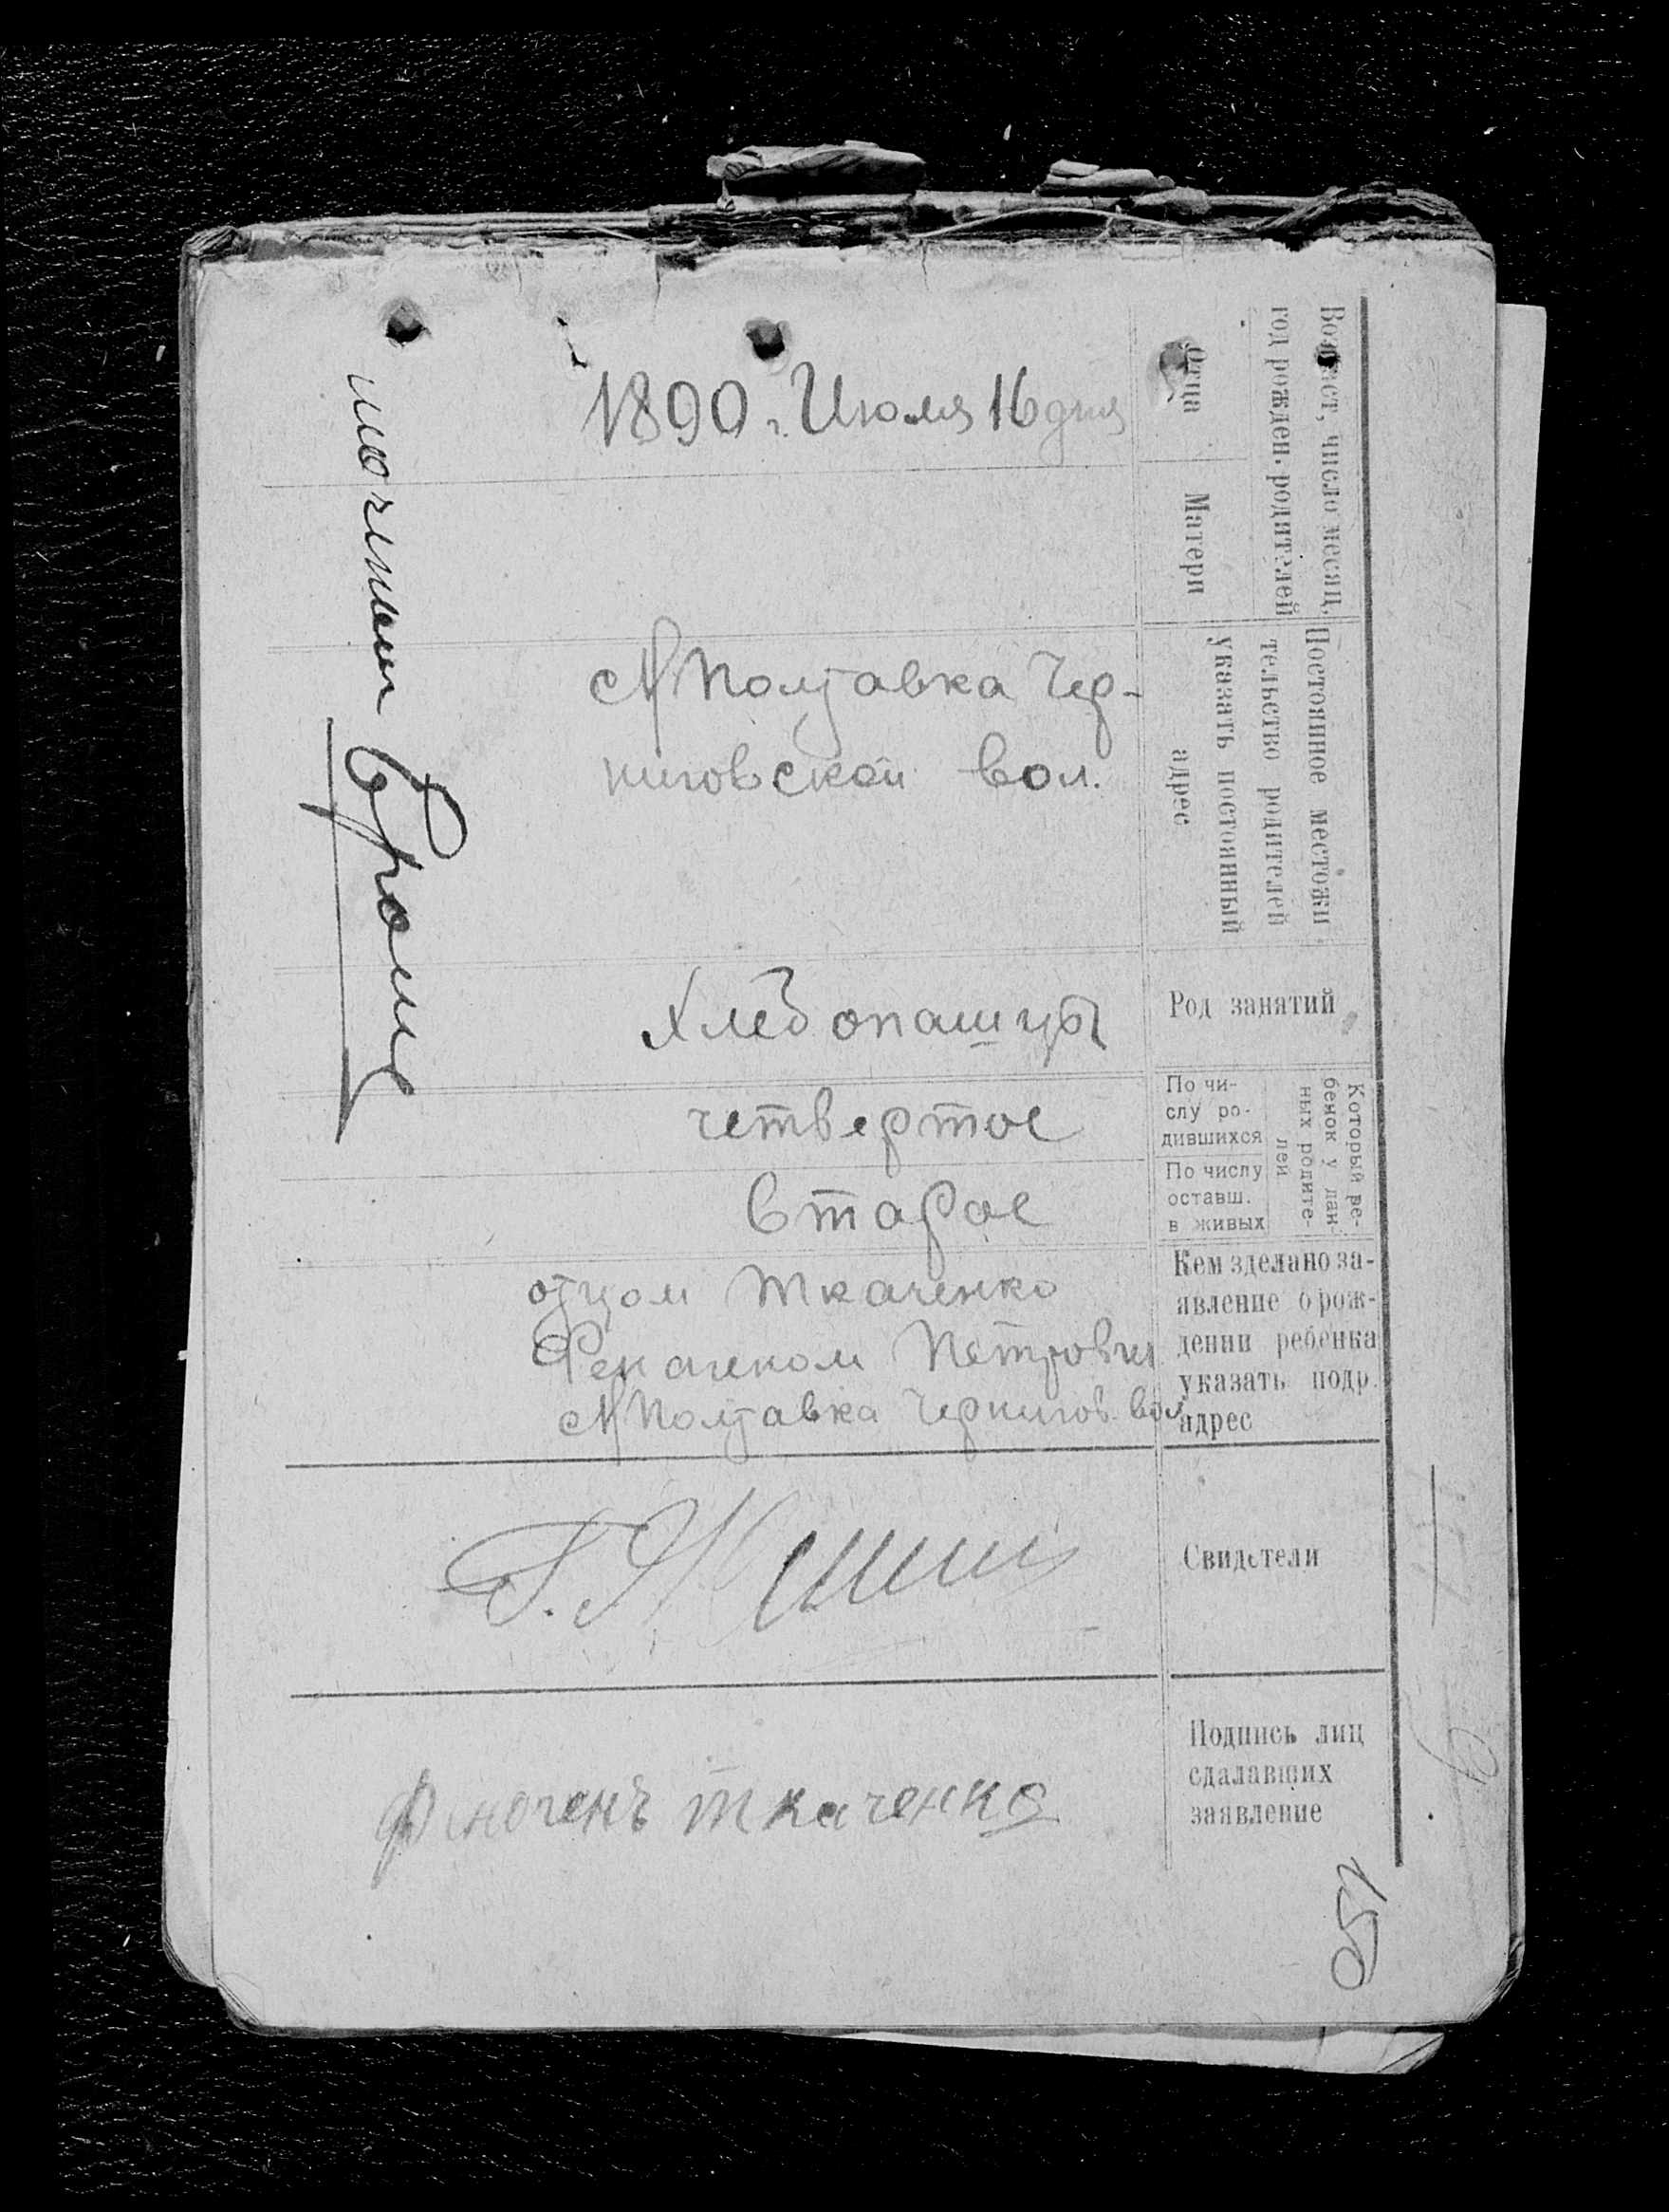 Возраст, число месяц,
год рожден. родителей
Отца
1890 г. Июля 16 дня
Матери
Постоянное местожи
тельство родителей
указать постоянный
адрес
Полтавка Чер-
ниговской вол.
Род занятий
Хлебопашцы
Который ре-
бенок у дан-
ных родите-
лей
По чи-
слу ро-
дившихся
четвертое
По числу
оставш.
в живых
второе
Кем зделано за-
явление о рож-
дении ребенка
указать подр.
адрес
отцом Ткаченко
Петрович
Полтавка Чернигов. вол.
Свидетели
Подпись лиц
сдалавших
заявление
ткаченко
150